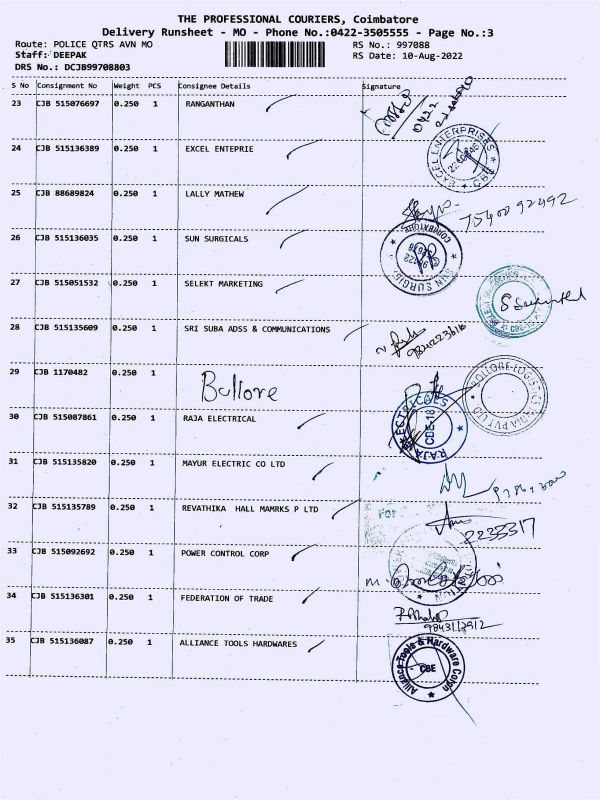 THE PROFESSIONAL COURIERS, Coimbatore
Delivery Runsheet - MO - Phone No.:0422-3505555 - Page No.:3
Route: POLICE QTRS AVN MO RS No.: 997088
Staff: DEEPAK RS Date: 10-Aug-2022
DRS No.: DCJB99708803
S No Consignment No Weight PCS Consignee Details Signature
23 CJB 515076697 0.250 1 RANGANTHAN
0422
24 CJB 515136389 0.250 1 EXCEL ENTEPRIE
EXCEL ENTERPRISES
25 CJB 88689824 0.250 1 LALLY MATHEW
26 CJB 515136035 0.250 1 SUN SURGICALS
COIMBATORE
27 CJB 515051532 0.250 1 SELEKT MARKETING
28 CJB 515135609 0.250 1 SRI SUBA ADSS & COMMUNICATIONS
29 CJB 1170482 0.250 1 Bollore
BOLLORE LOGISTICS INDIA PVT LTD
30 CJB 515087861 0.250 1 RAJA ELECTRICAL
RAJA ELECTRICALS CBE-18
31 CJB 515135820 0.250 1 MAYUR ELECTRIC CO LTD
32 CJB 515135789 0.250 1 REVATHIKA HALL MAMRKS P LTD
For
2233317
33 CJB 515092692 0.250 1 POWER CONTROL CORP
34 CJB 515136301 0.250 1 FEDERATION OF TRADE
35 CJB 515136087 0.250 1 ALLIANCE TOOLS HARDWARES
Alliance Tools & Hardware Coryn
CBE